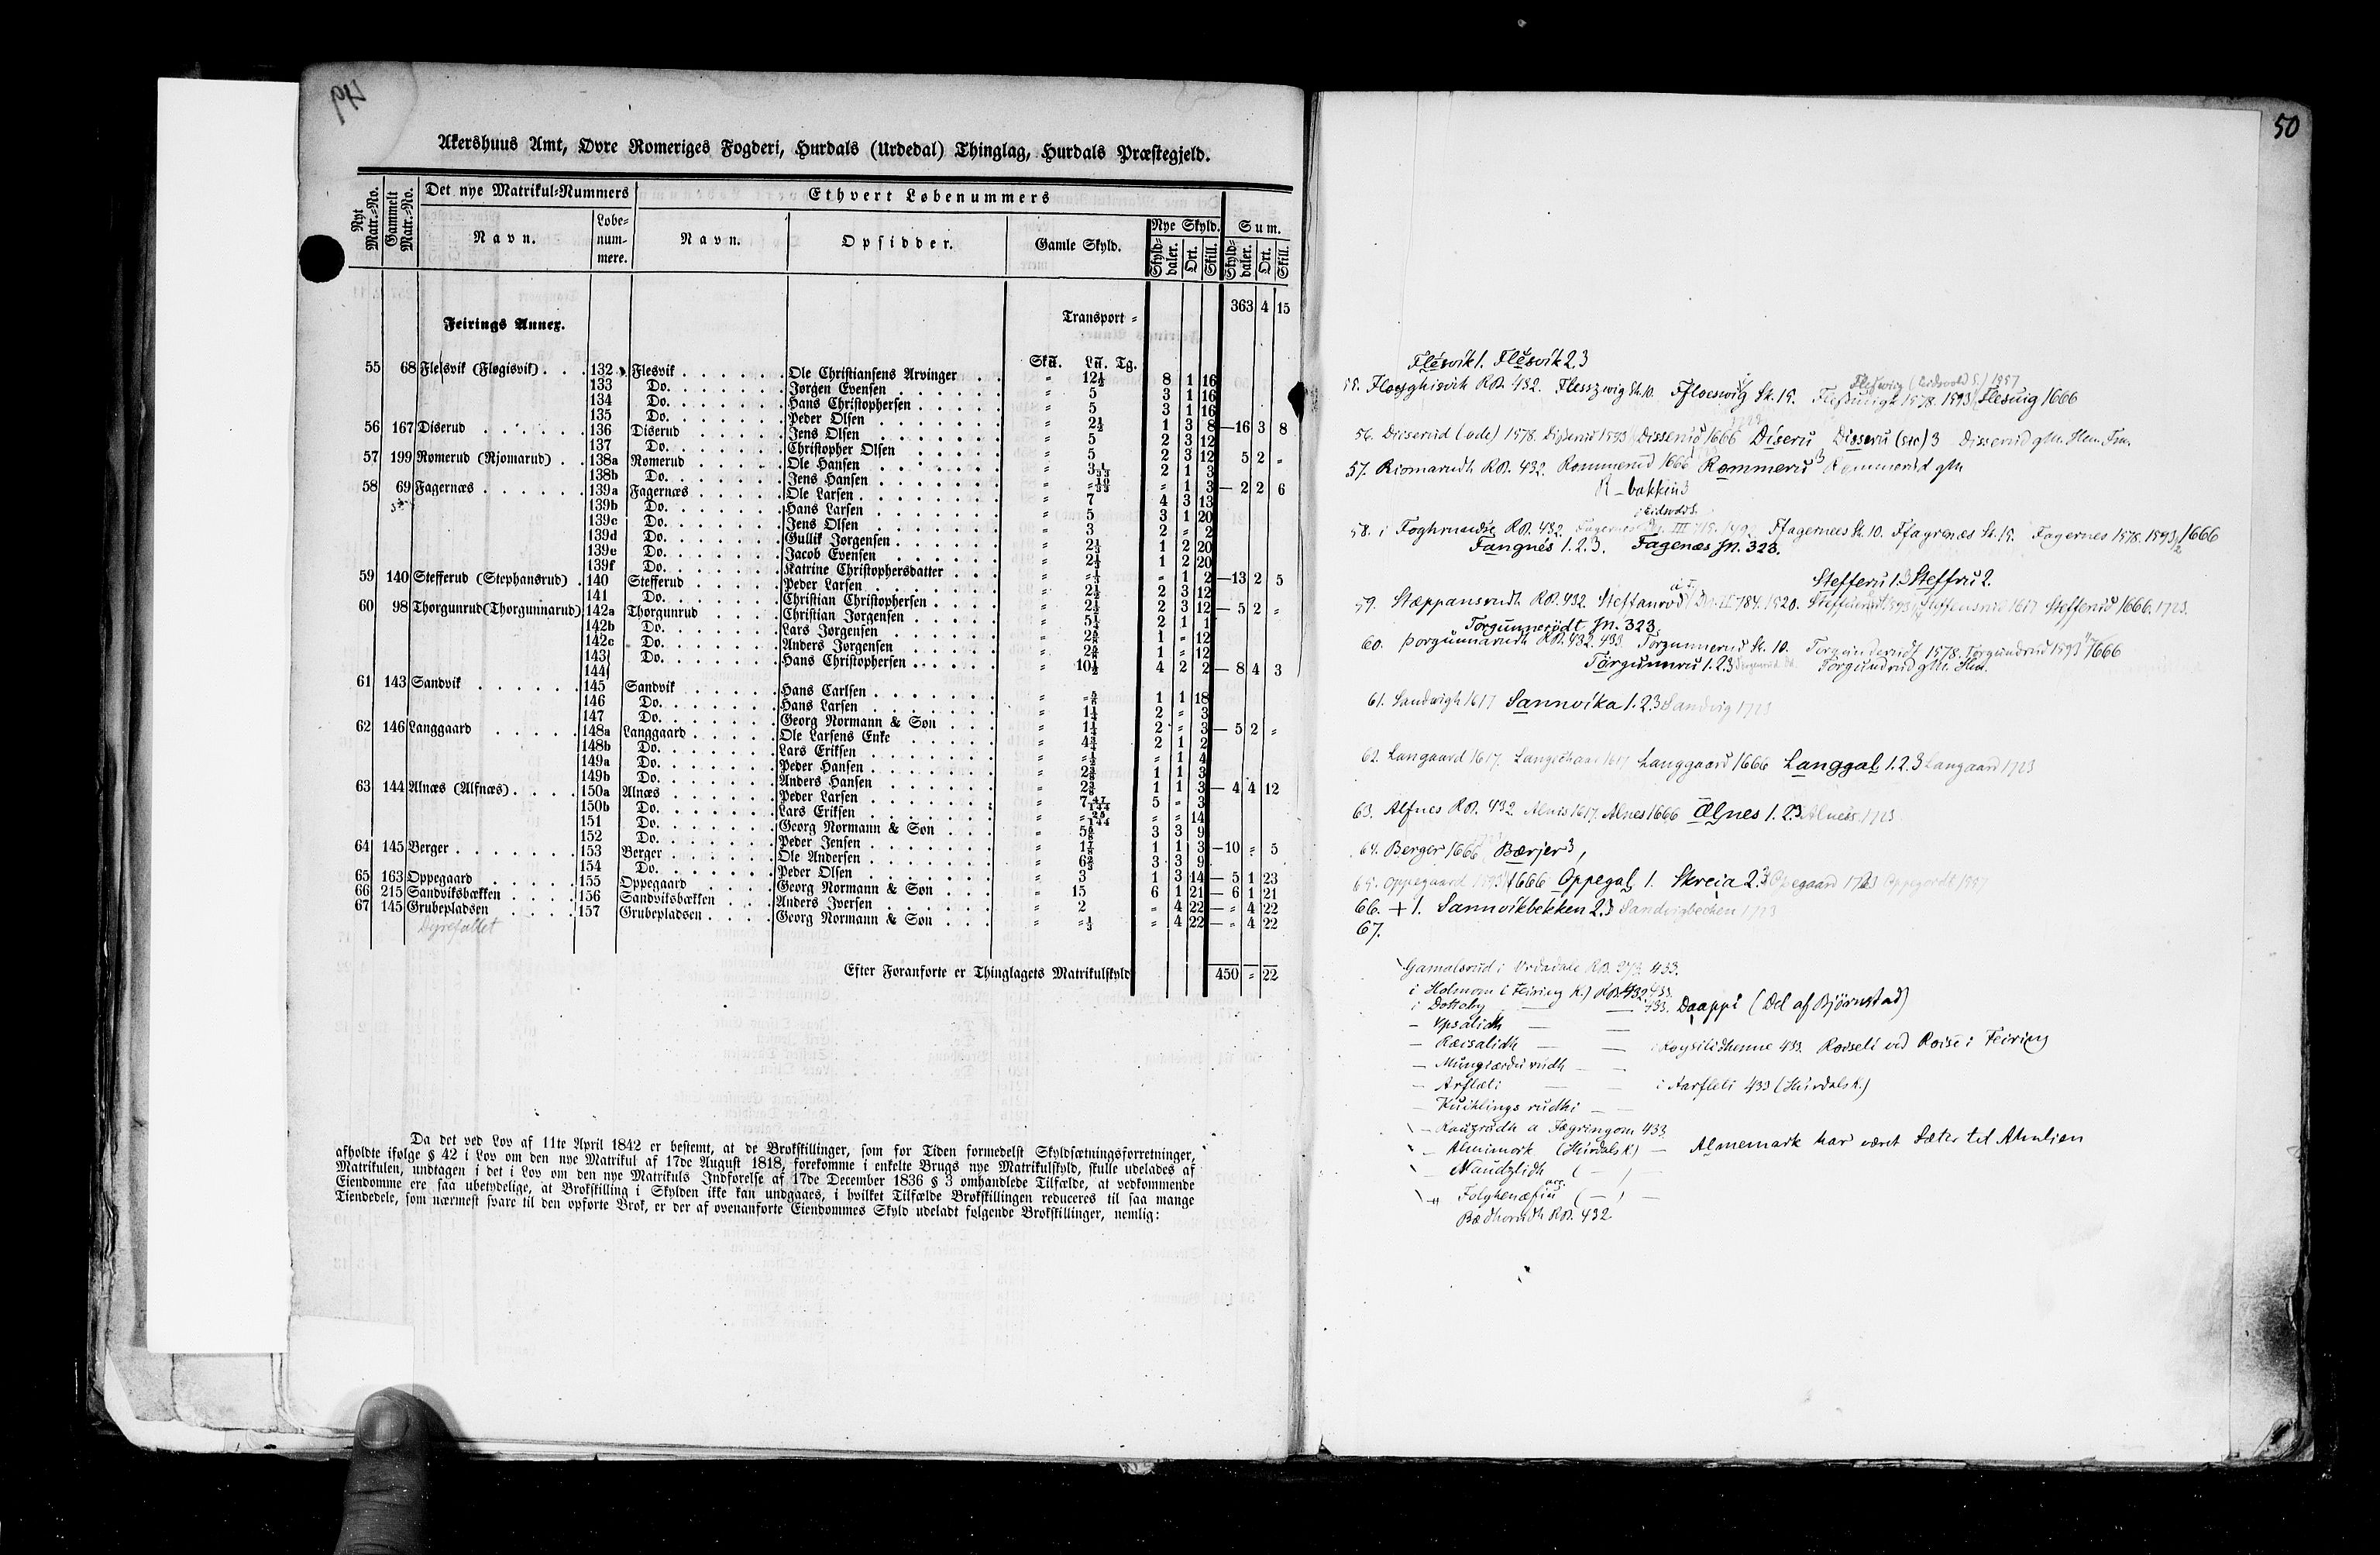 49
Akershuus Amt, Øvre Romeriges Fogderi, Hurdals (Urdedal) Thinglag, Hurdals Præstegjeld.
Nyt Matr.-No. Gammelt Matr.-No. Det nye Matrikul-Nummers Ethvert Løbenummers
Navn. Løbe-nummere. Navn. Opsidder. Gamle Skyld. Nye Skyld. Sum.
Skylddaler. Ort. Skill. Skylddaler. Ort. Skill.
Feirings Annex. Transport = 363 4 15
Sk℔. L℔. Tg.
55 68 Flesvik (Fløgisvik) . . . 132 Flesvik Ole Christiansens Arvinger = 12½ 8 1 16
133 Do. Jørgen Evensen = 5 3 1 16
134 Do. Hans Christophersen = 5 3 1 16
135 Do. Peder Olsen = 2½ 1 3 8 —16 3 8
56 167 Diserud 136 Diserud Jens Olsen = 5 2 3 12
137 Do. Christopher Olsen = 5 2 3 12 5 2 =
57 199 Rømerud (Rjomarud) 138a Rømerud Ole Hansen 2 1 3
138b Do. Jens Hansen = 1 3 — 2 2 6
58 69 Fagernæs 139a Fagernæs Ole Larsen = 7 4 3 13
139b Do. Hans Larsen = 5 3 1 20
139c Do. Jens Olsen = 3 2 = 2
139d Do. Gullik Jørgensen 1 2 20
139e Do. Jacob Evensen 1 2 20
139f Do. Katrine Christophersdatter = 1 2 —13 2 5
59 140 Stefferud (Stephansrud) 140 Stefferud Peder Larsen = 2½ 2 3 12
141 Do. Christian Christophersen = 2½ 2 3 12 — 5 2 =
60 98 Thorgunrud (Thorgunnarud) 142a Thorgunrud Christian Jørgensen = 5¼ 2 1 1
142b Do. Lars Jørgensen 1 = 12
142c Do. Anders Jørgensen 1 = 12
143 144 Do. Hans Christophersen = 10½ 4 2 2 — 8 4 3
61 143 Sandvik 145 Sandvik Hans Carlsen 1 1 18
146 Do. Hans Larsen = 1¼ 2 = 3
147 Do. Georg Normann & Søn = 1¼ 2 = 3 — 5 2 =
62 146 Langgaard 148a Langgaard Ole Larsens Enke 2 1 2
148b Do. Lars Eriksen = 1 4
149a Do. Peder Hansen 1 1 3
149b Do. Anders Hansen 1 1 3 — 4 4 12
63 144 Alnæs (Alfnæs) 150a Alnæs Peder Larsen 5 = 3
150b Do. Lars Eriksen = = 14
151 Do. Georg Normann & Søn 3 3 9
152 Do. Peder Jensen 1 1 3 —10 = 5
64 145 Berger 153 Berger Ole Andersen 3 3 9
154 Do. Peder Olsen = 3 1 3 14 — 5 1 23
65 163 Oppegaard 155 Oppegaard Georg Normann & Søn = 15 6 1 21 — 6 1 21
66 215 Sandviksbækken 156 Sandviksbækken Anders Iversen = 2 = 4 22 — = 4 22
67 145 Grubepladsen 157 Grubepladsen Georg Normann & Søn = =⅓ = 4 22 — = 4 22
Dyrefaltet
Efter Foranførte er Thinglagets Matrikulskyld 450 = 22
Da det ved Lov af 11te April 1842 er bestemt, at de Brøkskillinger, som for Tiden formedelst Skyldsætningsforretninger,
afholdte ifølge § 42 i Lov om den nye Matrikul af 17de August 1818, forekomme i enkelte Brugs nye Matrikulskyld, skulle udelades af
Matrikulen, undtagen i det i Lov om den nye Matrikuls Indførelse af 17de December 1836 § 3 omhandlede Tilfælde, at vedkommende
Eiendomme ere saa ubetydelige, at Brøkskilling i Skylden ikke kan undgaaes, i hvilket Tilfælde Brøkskillingen reduceres til saa mange
Tiendedele, som nærmest svare til den opførte Brøk, er der af ovenanførte Eiendommes Skyld udeladt følgende Brøkskillinger, nemlig:
50
Flesvik 1. Flesvik 2.3
Fleswig (Eidsvold S.) 1557
55. Floysghisvik RB. 432. Flesszwig St. 10. Ffloeswig St. 15. 1578. 1593 Flesuig 1666
56. Diiserud (øde) 1578. Disserud 1593 Dissenud 1666 Diseru Disseru (sic) 3 Disserud gM.
57. Riomarudh RB. 432. Rommerud 1666 Rommeru 3 Rommerud gM
R-bakkin 3
58. i Foghrunesie RB. 432. Ffagernees St. 10. Ffagrenæs St. 15. Fagernes 1578. 1593 1666
Fangnes 1.2.3. Fagenæs JN. 323.
Stefferu 1.3 Steffru 2.
59. Stæppansrudh RB. 432. Steffanrud 784. 1520. Steffensrud 1617 Stefferud 1666. 1723.
Torgunnerødt JN. 323.
60. Þorgunnarudh RB. 432. 433. Torgunnerud St. 10. Torgunderudt 1578. Torgundrud 1593 1666
Torgunnru 1.2.3 Torgundrud gM.
61. Sandwigh 1617 Sannvika 1.2.3 Sandvig 1723
62. Langaard 1617. Langgaard 1666 LanggaL 1.2.3 Langaard 1723
63. Alfnes RB. 432 Alnes 1617. Alnes 1666 Ælnes 1.2.3 Alness 1723
64. Berger 1666 Bærjer 3
65. Oppegaard 1593 1666 OppegaL 1. Skreia 2.3 Opegaard 1723
66. + 1. Sannvikbekken 2.3 Sandvigbechen 1723
67.
Gamalsrud i Urdadale RB. 433.
i Holmom (Feiring K.) RB. 432. 433.
i Dottaby — — 433. Daappi (Del af Bjørnstad)
— Ypsalidh — —
— Ræisalidh — — i Røysilidhenne 433. Røiseli ved Røise i Feiring
— Mungiærdurudh — —
— Arflæti — — i Aarfleti 433 (Hurdals K.)
— Kuiklings rudhi — —
— Rangrudh a Fægringom 433
— Almimork (Hurdals K.) — Almemark har været Sæter til Almlien
— Naudzlidh ( — ) —
— Folghenæsiu ( — ) —
Bædhorudh RB. 432